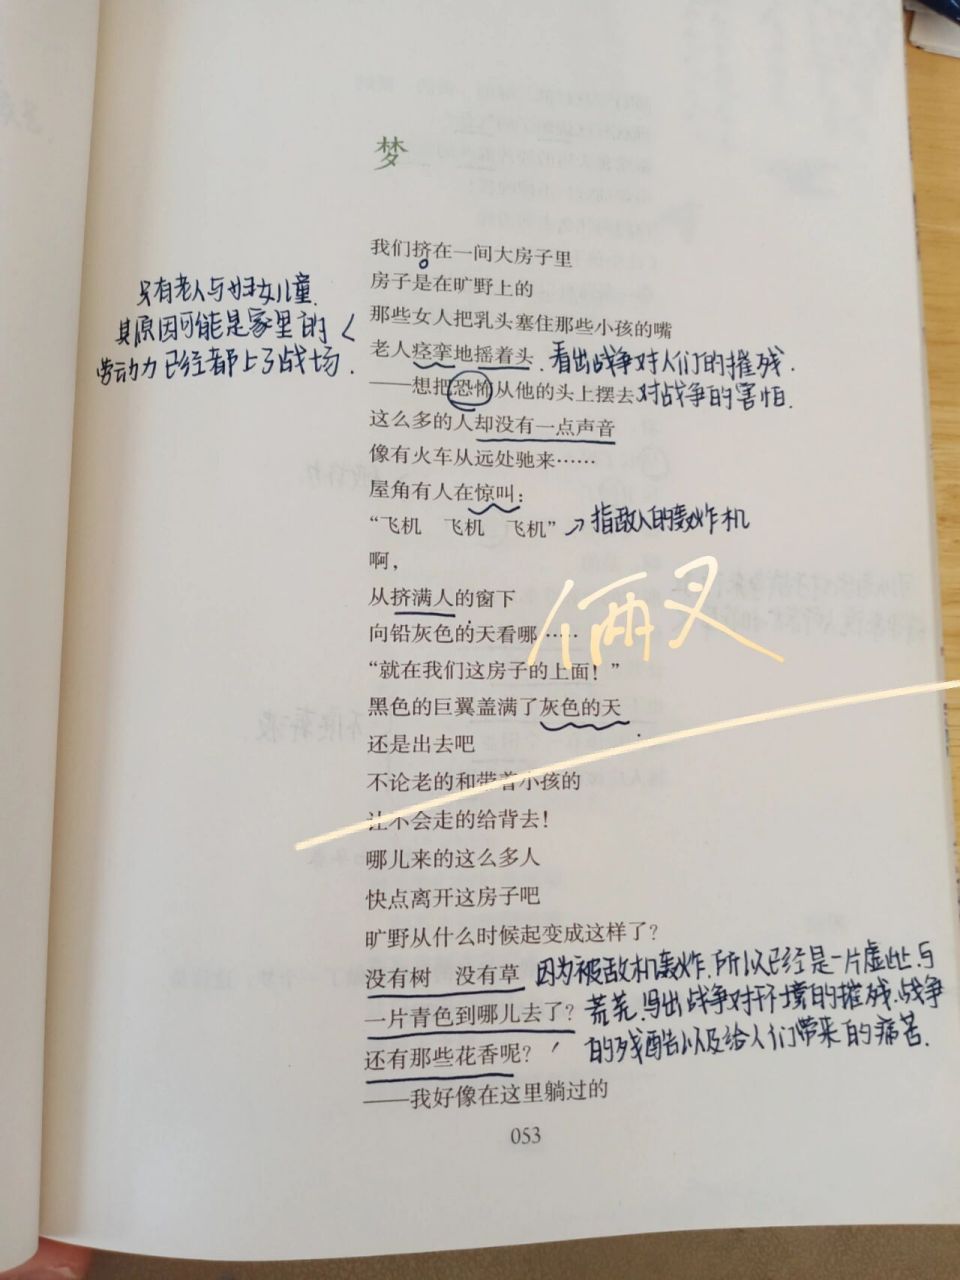 梦
我们挤在一间大房子里
房子是在旷野上的
只有老人与妇女儿童.
其原因可能是家里的
劳动力已经都上了战场.
那些女人把乳头塞住那些小孩的嘴
老人痉挛地摇着头. 看出战争对人们的摧残.
——想把恐怖从他的头上摆去 对战争的害怕.
这么多的人却没有一点声音
像有火车从远处驰来……
屋角有人在惊叫：
“飞机 飞机 飞机” →指敌人的轰炸机
啊，
从挤满人的窗下
向铅灰色的天看哪……
俩又
“就在我们这房子的上面！”
黑色的巨翼盖满了灰色的天
还是出去吧
不论老的和带着小孩的
让不会走的给背去！
哪儿来的这么多人
快点离开这房子吧
旷野从什么时候起变成这样了？
没有树 没有草 因为被敌机轰炸.所以已经是一片虚址.与
一片青色到哪儿去了？ 荒芜.写出战争对环境的摧残.战争
还有那些花香呢？ 的残酷以及给人们带来的痛苦.
——我好像在这里躺过的
053